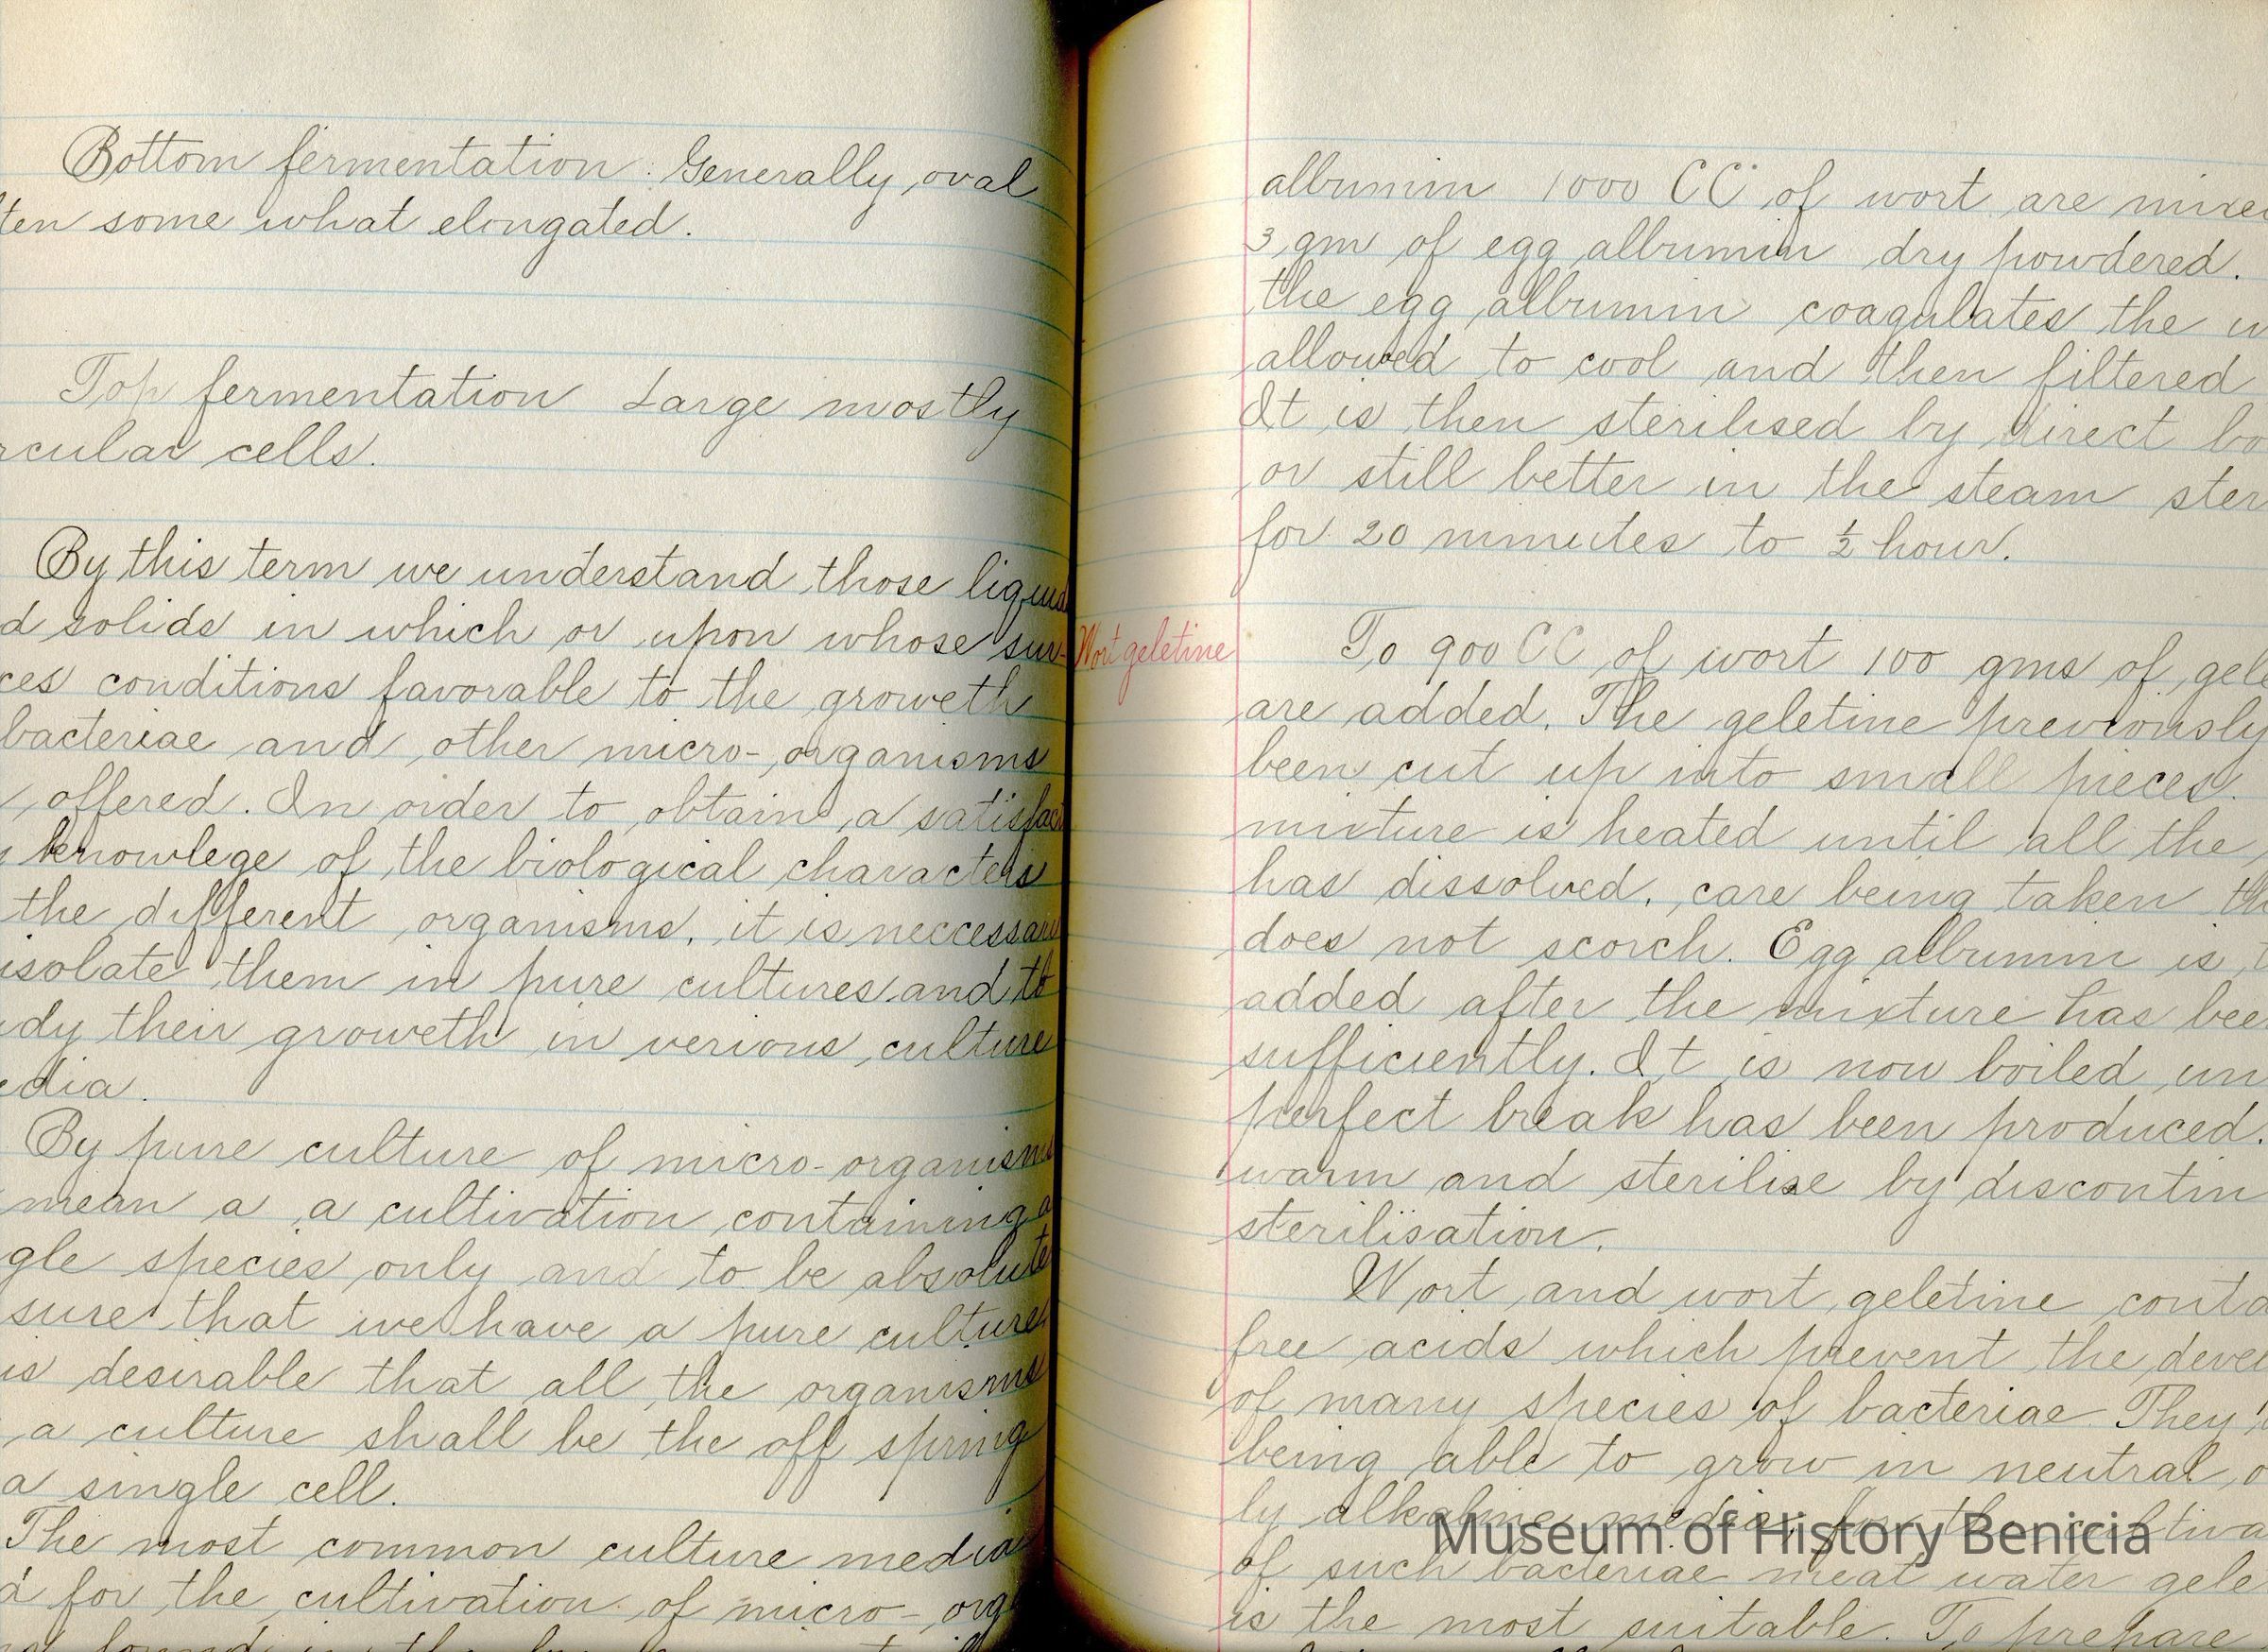 Bottom fermentation. Generally oval
ten some what elongated.
Top fermentation Large mostly
rcular cells.
By this term we understand those liquid
d solids in which or upon whose sur-
ces conditions favorable to the groweth
bacteriae and other micro-organisms
offered. In order to obtain a satisfact
knowlege of the biological characters
the different organisms, it is neccessary
isolate them in pure cultures and to
dy their groweth in verious culture
edia.
By pure culture of micro-organisms
mean a a cultivation containing a
gle species only and to be absolute
sure that we have a pure culture
is desirable that all the organisms
a culture shall be the off spring
a single cell.
The most common culture media
d for the cultivation of micro-orga
albumin 1000 CC of wort are mixed
3 gm of egg albumin dry powdered.
the egg albumin coagulates the w
allowed to cool and then filtered
It is then sterilised by direct bo
or still better in the steam ster
for 20 minutes to ½ hour.
Wort geletine
To 900 CC of wort 100 gms of gele
are added. The geletine previously
been cut up into small pieces.
mixture is heated until all the
has dissolved, care being taken th
does not scorch. Egg albumin is
added after the mixture has bee
sufficiently. It is now boiled un
perfect break has been produced.
warm and sterilise by discontin
sterilisation.
Wort and wort geletine conta
free acids which prevent the devel
of many species of bacteriae. They
being able to grow in neutral o
ly alkaline media, for the cultiva
of such bacteriae meat water gele
is the most suitable. To prepare
Museum of History Benicia